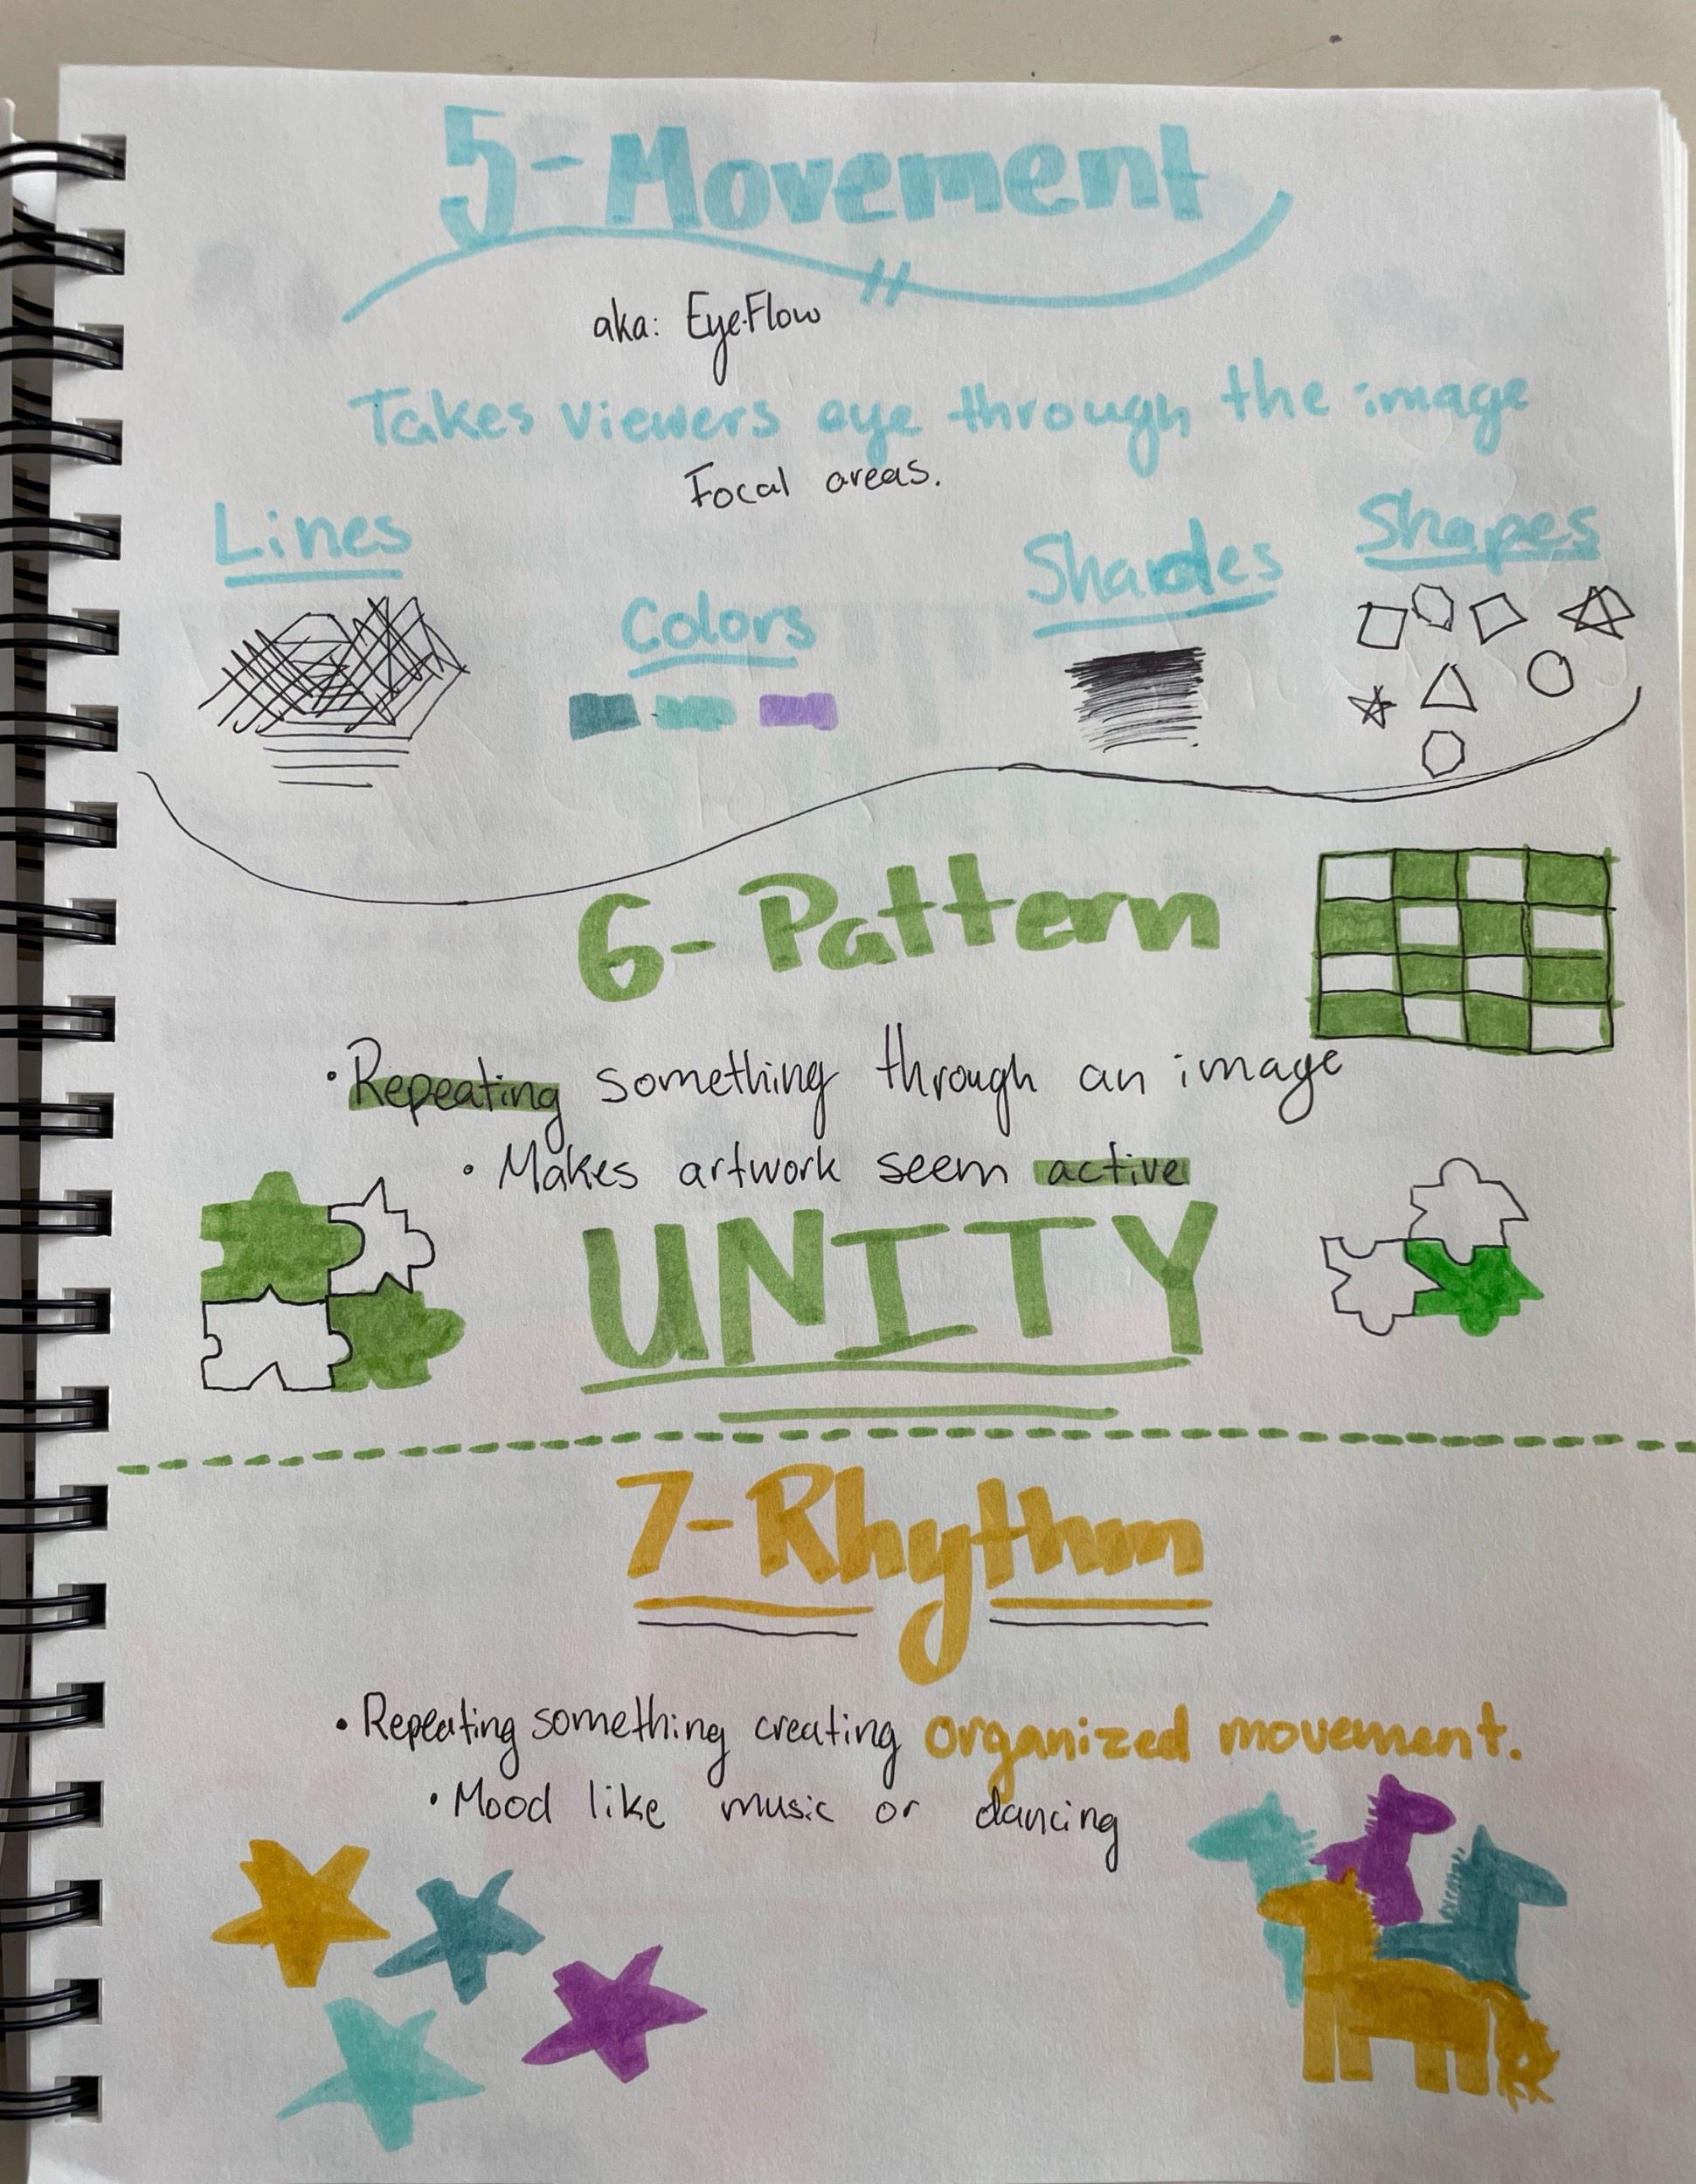 5-Movement
aka: Eye-Flow
Takes viewers eye through the image
Focal areas.
Lines
Colors
Shades
Shapes
6-Pattern
• Repeating something through an image
• Makes artwork seem active
UNITY
7-Rhythm
• Repeating something creating organized movement.
• Mood like music or dancing